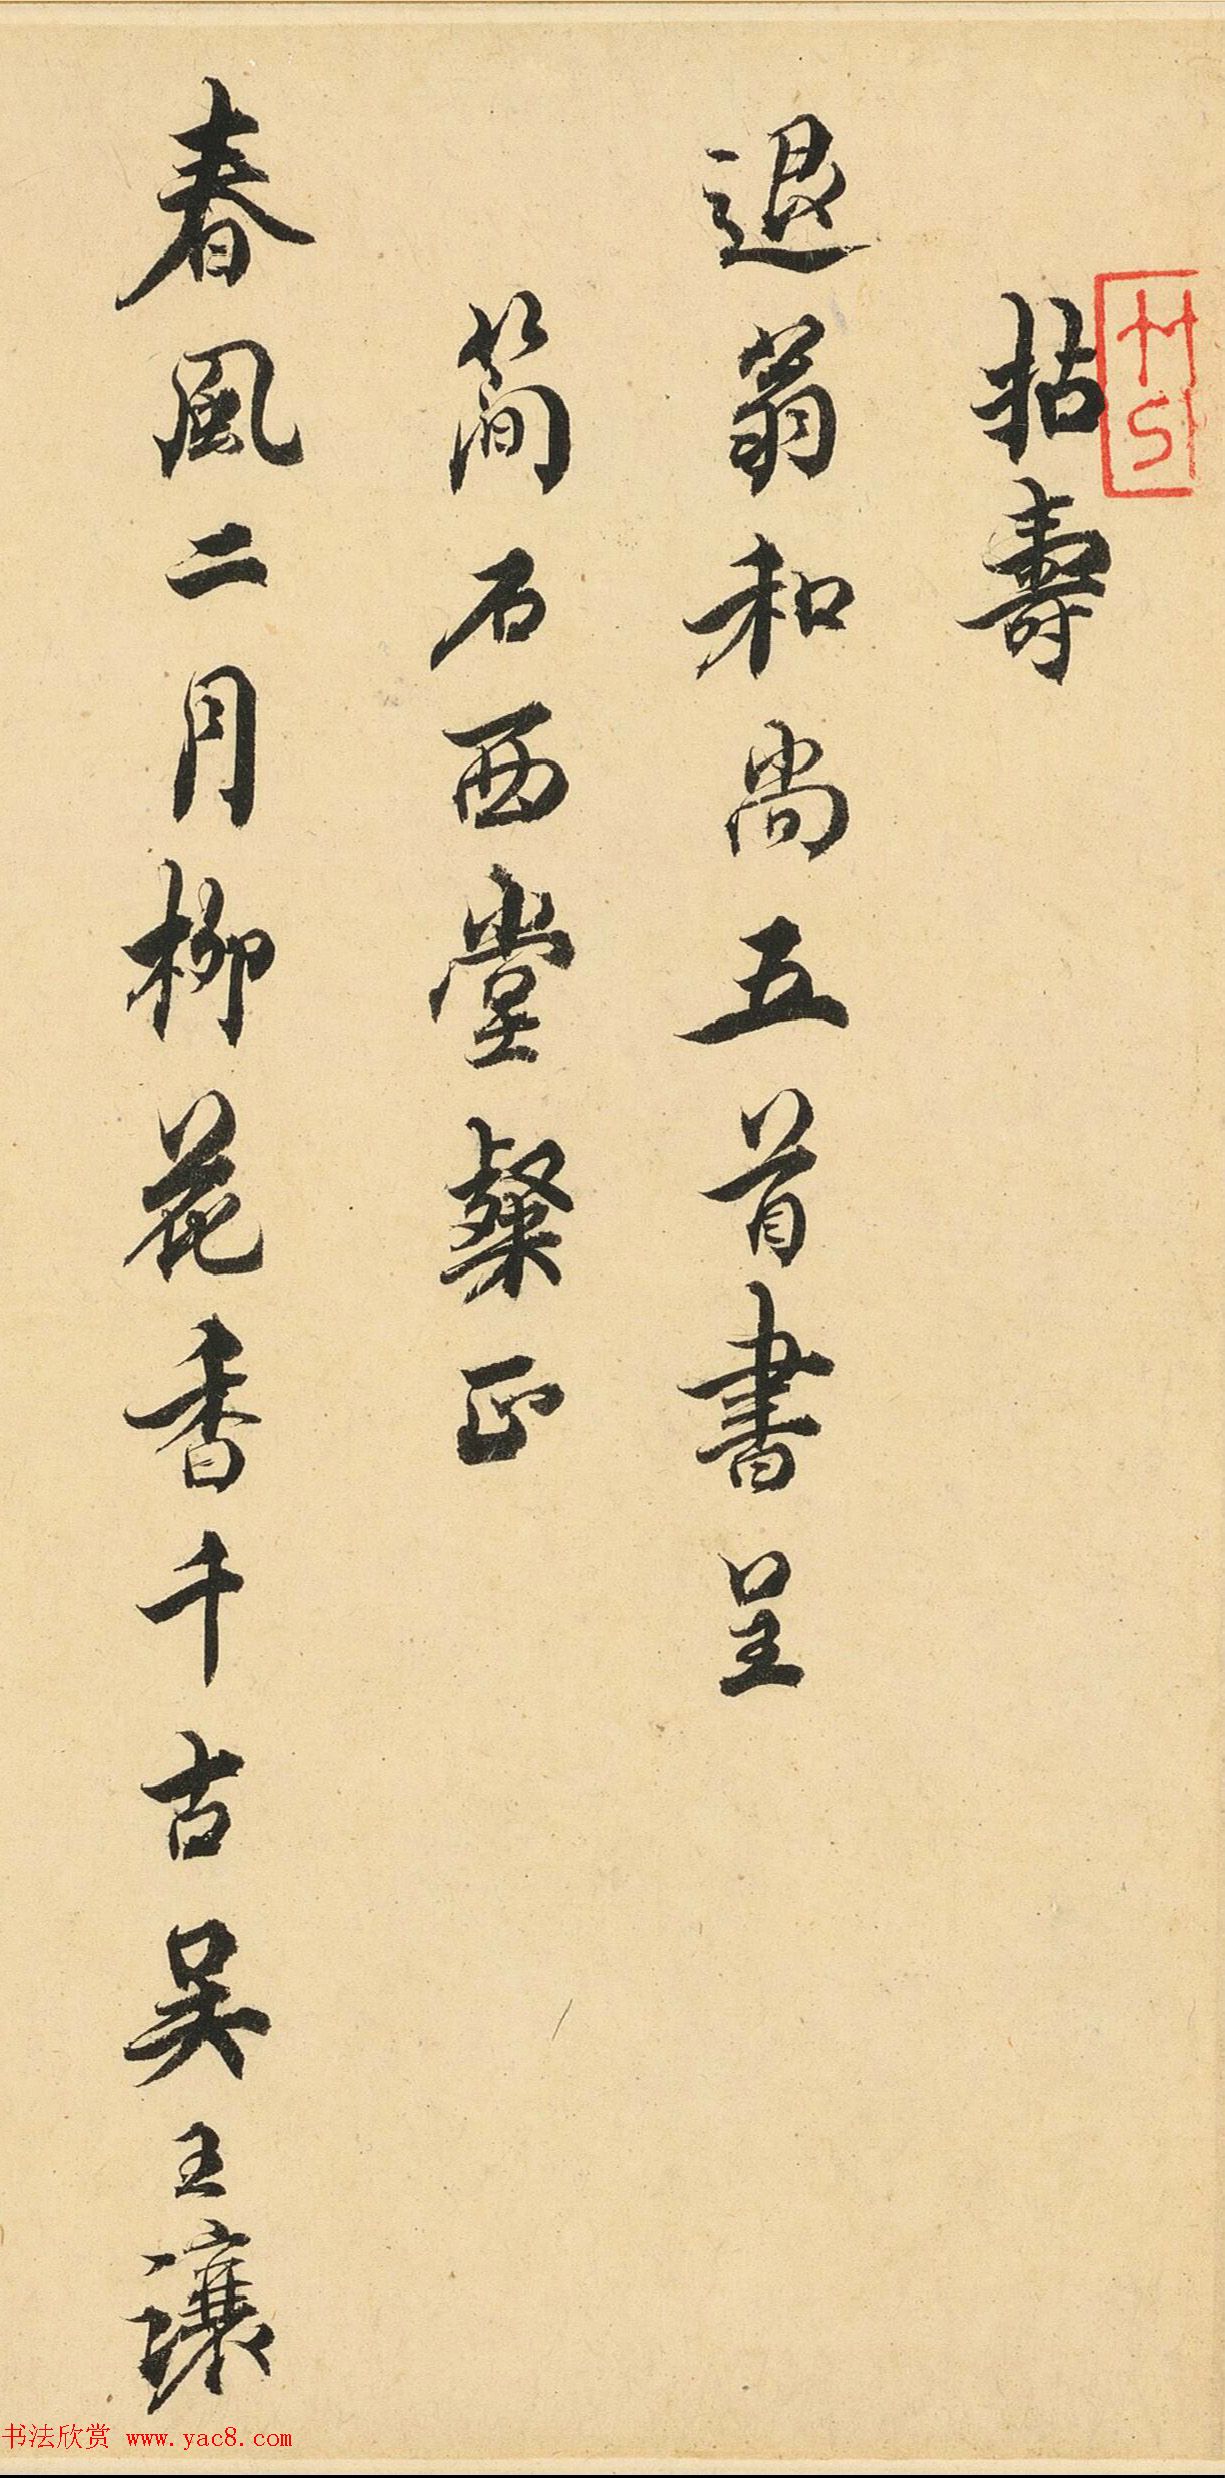 拈壽
退翁和尚五首書呈
簡石西堂粲正
春風二月柳花香千古吳王讓
书法欣赏 www.yac8.com